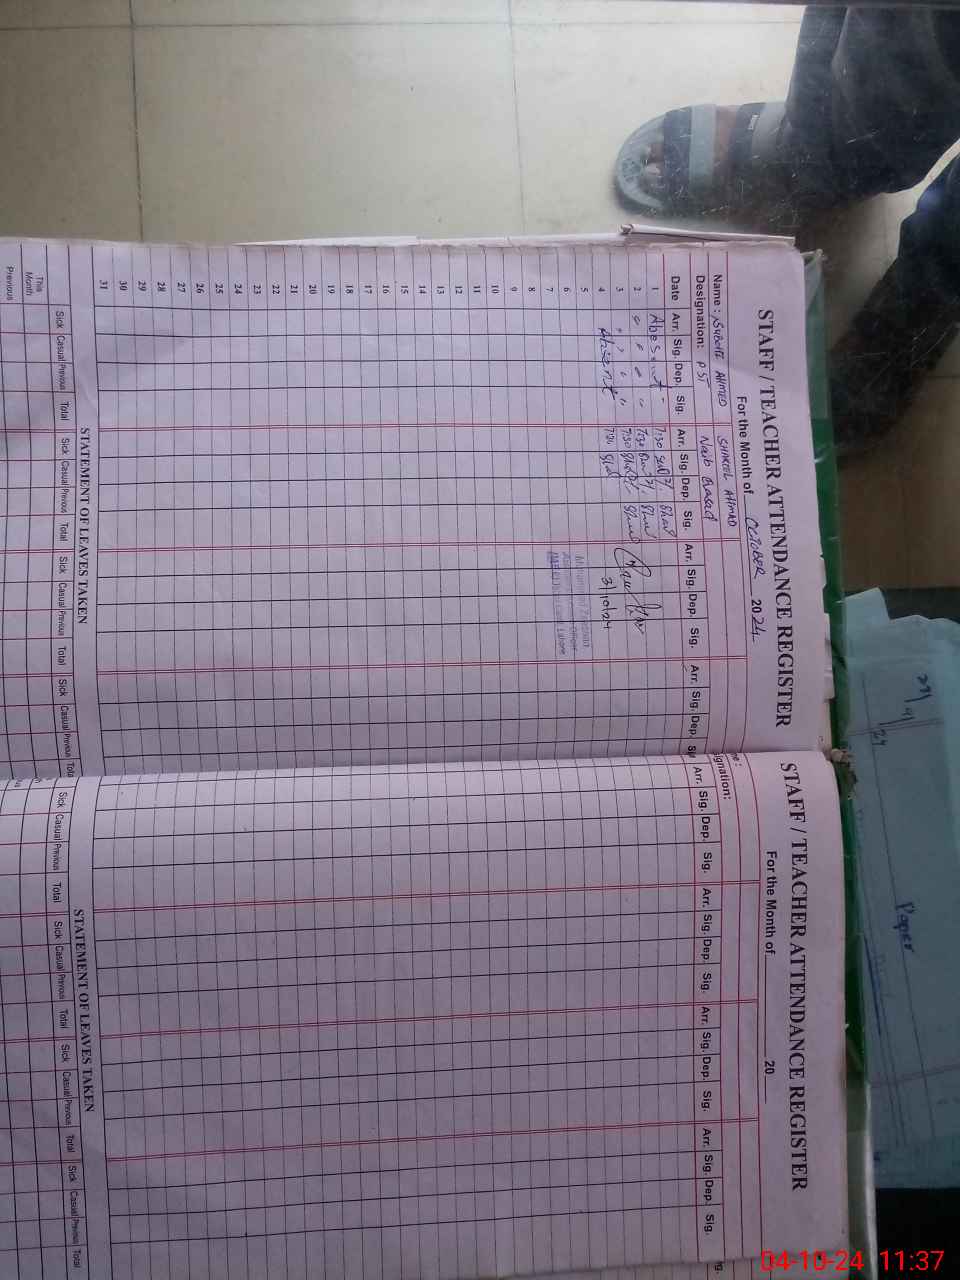 STAFF / TEACHER ATTENDANCE REGISTER
For the Month of OCTOBER 2024
Name: AHMED SHAKEEL AHMAD
Designation: PST Naib Qasad
Date Arr. Sig. Dep. Sig. Arr. Sig. Dep. Sig. Arr. Sig. Dep. Sig. Arr. Sig. Dep.
1 Absent - 7:30
2 " " " " 7:30
3 " " " " 7:30
4 Absent
3/10/24
5
6
7
8
9
10
11
12
13
14
15
16
17
18
19
20
21
22
23
24
25
26
27
28
29
30
31
STATEMENT OF LEAVES TAKEN
Sick Casual Previous Total Sick Casual Previous Total Sick Casual Previous Total Sick Casual Previous
This Month
Previous
STAFF / TEACHER ATTENDANCE REGISTER
For the Month of 20
me:
signation:
Arr. Sig. Dep. Sig. Arr. Sig. Dep. Sig. Arr. Sig. Dep. Sig. Arr. Sig. Dep. Sig.
STATEMENT OF LEAVES TAKEN
Sick Casual Previous Total Sick Casual Previous Total Sick Casual Previous Total Sick Casual Previous Total
Paper
04-10-24 11:37